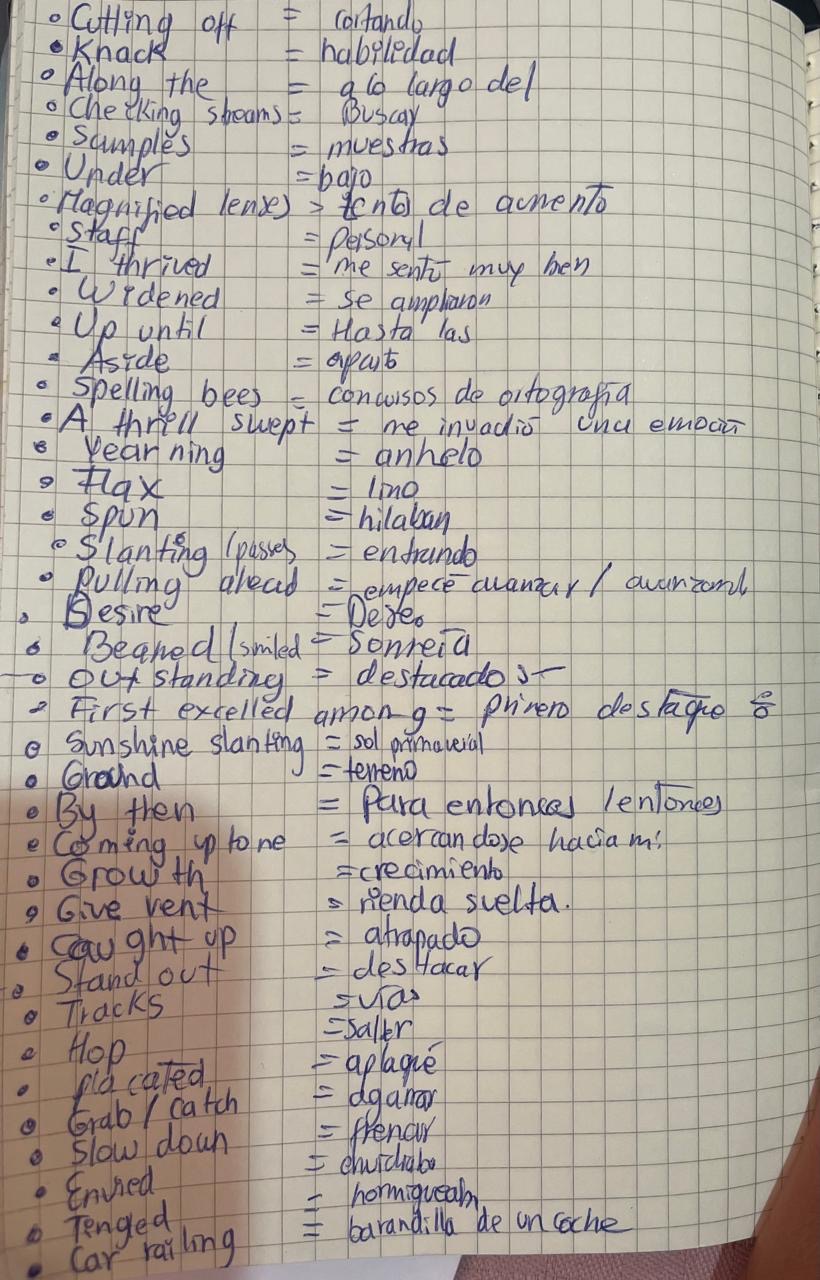 • Cutting off = cortando
• Knack = habiledad
• Along the = a lo largo del
• Checking = Buscar
• Samples = muestras
• Under = bajo
• Magnified lenses > de aumento
• Staff = Personal
• I thrived = me sentí muy bien
• Widened = se ampliaron
• Up until = Hasta las
• Aside = aparte
• Spelling bees = concursos de ortografía
• A thrill swept = me invadió una emoción
• Yearning = anhelo
• Flax = lino
• Spun = hilaban
• Slanting / passes = entrando
• Pulling ahead = empecé avanzar /
• Desire = Deseo
• Beaned / smiled = Sonreía
• Out standing = destacado
• First excelled among = primero destaque
• Sunshine slanting = sol primaveral
• Ground = terreno
• By then = Para entonces / entonces
• Coming up to me = acercandose hacia mi
• Growth = crecimiento
• Give vent = rienda suelta.
• Caught up = atrapado
• Stand out = destacar
• Tracks = vías
• Hop = salter
• placated = aplaqué
• Grab / Catch = aganar
• Slow down = frenar
• Envied =
• Tenged = hormigueaba
• Car railing = barandilla de un coche